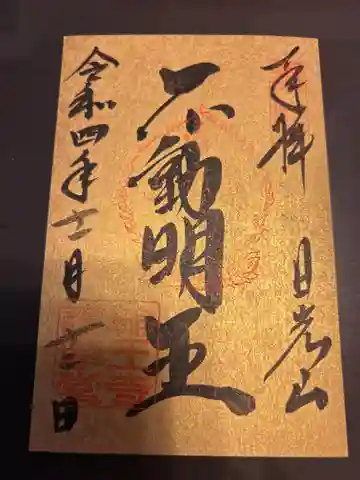 奉拝 日光山
不動明王
令和四年十二月十二日